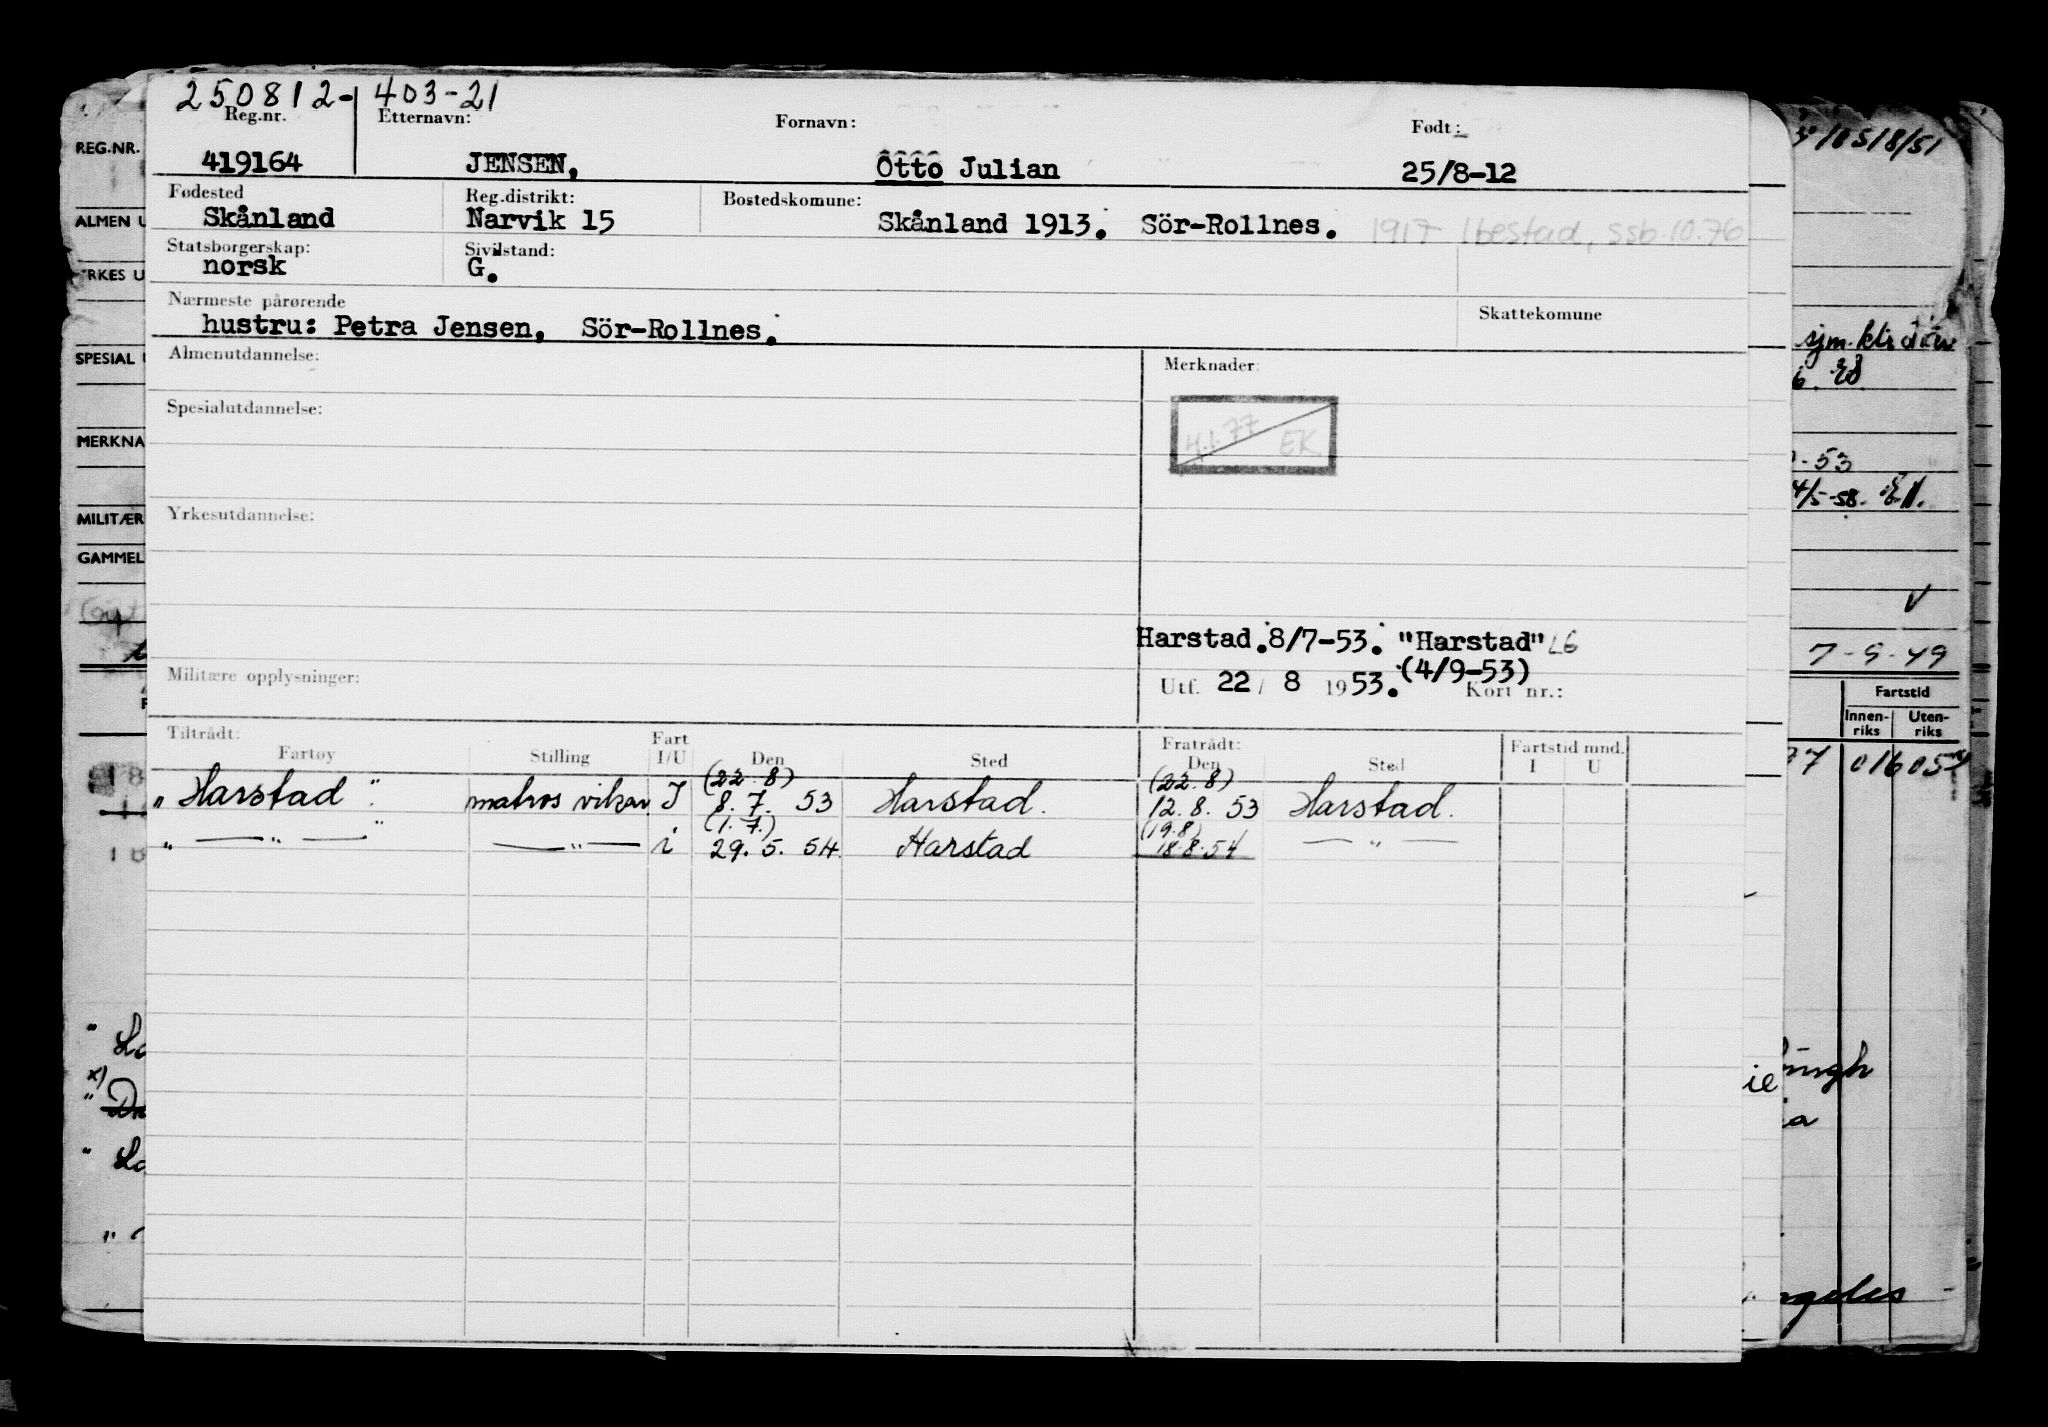 250812-403-21
Reg.nr. Etternavn: Fornavn: Født:
419164 JENSEN, Otto Julian 25/8-12
Fødested Reg.distrikt: Bostedskomune:
Skånland Narvik 15 Skånland 1913. Sör-Rollnes. 1917 Ibestad, ssb.10.76
Statsborgerskap: Sivilstand:
norsk G.
Nærmeste pårørende Skattekomune
hustru: Petra Jensen, Sör-Rollnes.
Almenutdannelse: Merknader:
4.1.77 EK
Spesialutdannelse:
Yrkesutdannelse:
Harstad.8/7-53. "Harstad" LG
(4/9-53)
Militære opplysninger: Utf. 22/ 8 1953. Kort nr.:
Tiltrådt: Fratrådt: Fartstid mnd.
Fartøy Stilling Fart I/U Den Sted Den Sted I U
(22.8) (22.8)
"Harstad". matros vikar I 8.7. 53 Harstad. 12.8.53 Harstad.
(1.7.) (19.8)
" — " — " — " — i 29.5.54 Harstad 18.8.54 — " —
REG.NR.
ALMEN U
RKES U
SPESIAL
MERKNA
MILITÆR
GAMMEL
18/51
sjm.
-53
4/5-58.
7-9-49
Fartstid
Innen-riks Uten-riks
016 05
ie
ngeles